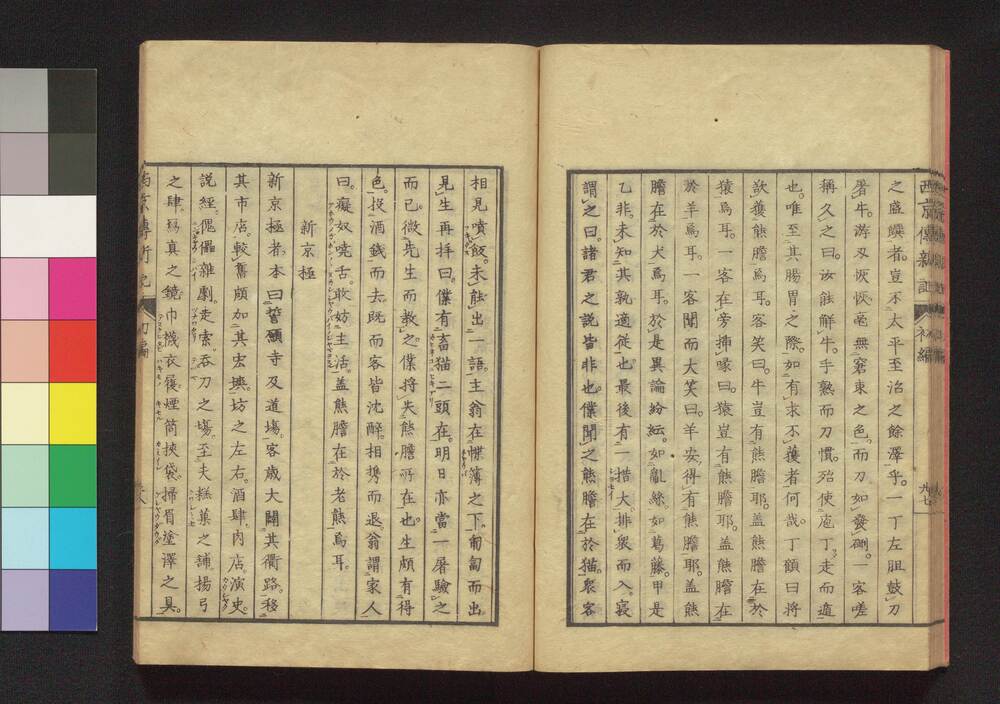 西京傳新記 初編
之盛饌者。豈不太平至治之餘澤乎。一丁左胆鼓刀
屠牛。游刃恢恢。毫無窘束之色。而刀如發硎。一客嗟
稱久之曰。汝能解牛。手熟而刀慣。殆使庖丁走而遁
也。唯至其腸胃之際。如有求不獲者何哉。丁顧曰將
欲獲熊膽焉耳。客笑曰。牛豈有熊膽耶。盖熊膽在於
猿焉耳。一客在旁挿喙曰。猿豈有熊膽耶。盖熊膽在
於羊焉耳。一客聞而大笑曰。羊安得有熊膽耶。盖熊
膽在於犬焉耳。於是異論紛紜。如亂絲。如葛藤。甲是
乙非。未知其孰適從也。最後有一措大。排衆而入。竊
謂之曰。諸君之説皆非也。僕聞之熊膽在於猫。衆客
相見噴飯。未能出一語。主翁在牒簿之下。匍匐而出
見生再拝曰。僕有畜猫二頭在。明日亦當一屠驗之
而已。微先生而教之。僕将失熊膽所在也。生頗有得
色。投酒錢而去。既而客皆沈醉。相携而退。翁謂家人
曰。癡奴饒舌。敢妨生活。盖熊膽在於老熊焉耳。
新京極
新京極者。本曰誓願寺及道塲。客歳大闢其衢路。移
其市店。較舊頗加其宏壊。坊之左右。酒肆。肉店。演史。
説經。傀儡。雜劇。走索。呑刀之塲。至夫糕菓之舗。揚弓
之肆。寫真之鏡。巾機衣履。煙筒挾袋。掃眉塗澤之具。